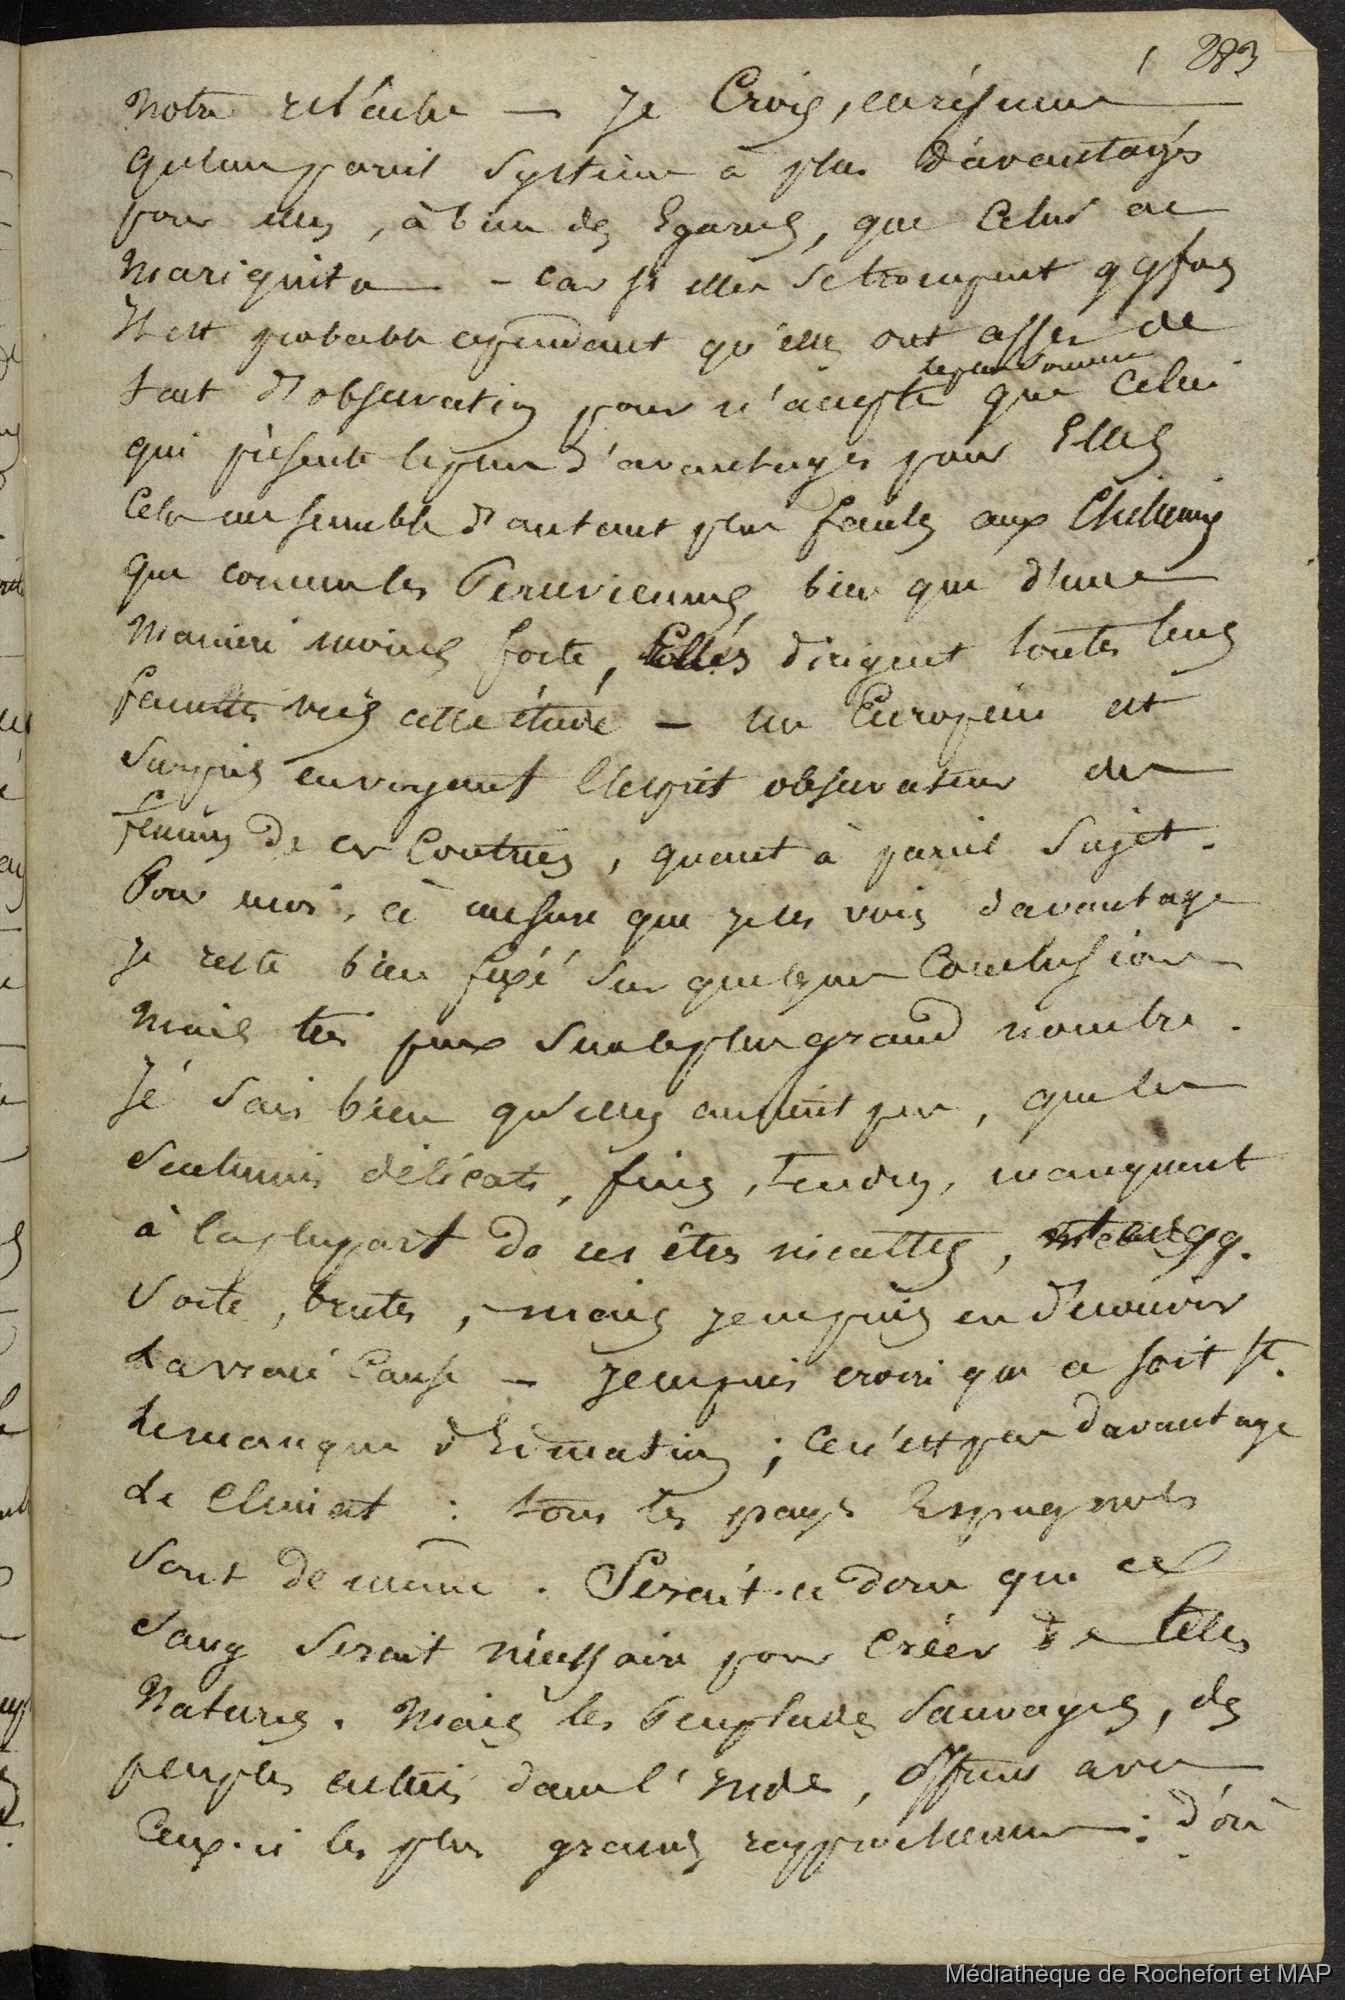 283
notre relâche — Je Crois, en résumé
qu'un pareil système a plus d'avantages
pour elles, à bien des Egards, que Celui de
Mariquita — car si elles se trompent qqfois
Il est probable cependant qu'elles ont assez de
tact d'observation pour n'accepter
le plus souvent
que celui
qui présente le plus d'avantages pour Elles
Cela me semble d'autant plus facile aux Chiliennes
que comme les Peruviennes, bien que d'une
Maniere moins forte, Elles dirigent toutes leurs
facultés vers cette étude — un Européen est
Surpris en voyant l'esprit observateur des
femmes de ces Contrées, quant à pareil Sujet.
Pour moi, à mesure que je les vois davantage
je reste bien fixé sur quelques Conclusions
Mais très peu sur le plus grand nombre.
Je sais bien qu'elles aiment peu, que les
Sentimens délicats, fins, tendres, manquent
à la plupart de ces êtres incultes, et en qq.
Sorte, brutes, mais je ne puis en découvrir
La vraie Cause — je ne puis croire que ce soit
Le manque d'Education; ce n'est pas davantage
Le Climat : tous les pays Espagnols
Sont de même. Serait-ce donc que ce
Sang serait nécessaire pour créer de telles
Natures. Mais les Peuplades Sauvages, des
peuples entiers dans l'Inde, offrent avec
Ceux-ci les plus grands rapprochemens : d'où
Médiathèque de Rochefort et MAP